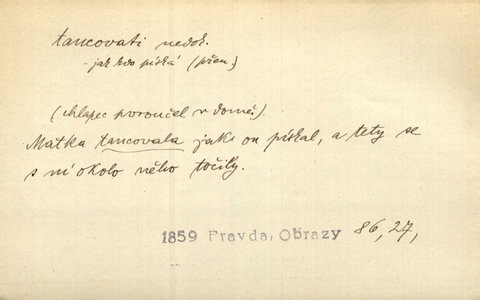 tancovati nedok.
- jak kdo píská (přen.)
(chlapec poroučel v domě.)
Matka tancovala jak on pískal, a tety se
s ní okolo něho točily.
1859 Pravda, Obrazy 86, 27,